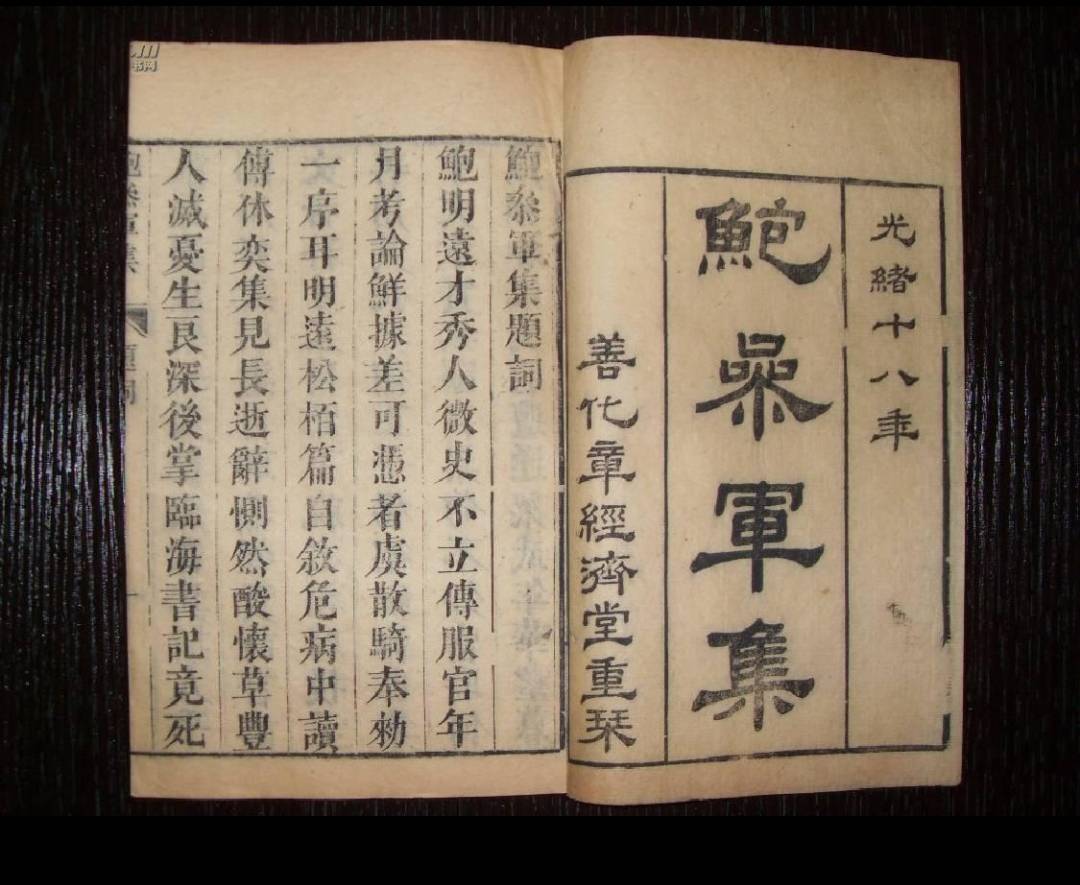 光緒十八年
鮑叅軍集
善化章經濟堂重栞
鮑叅軍集題詞
鮑明遠才秀人微史不立傳服官年
月考論鮮據差可憑者虞散騎奉勑
一序耳明遠松栢篇自敘危病中讀
傅休奕集見長逝辭惻然酸懷草豐
人滅憂生良深後掌臨海書記竟死
鮑叅軍集
題詞
一
书网